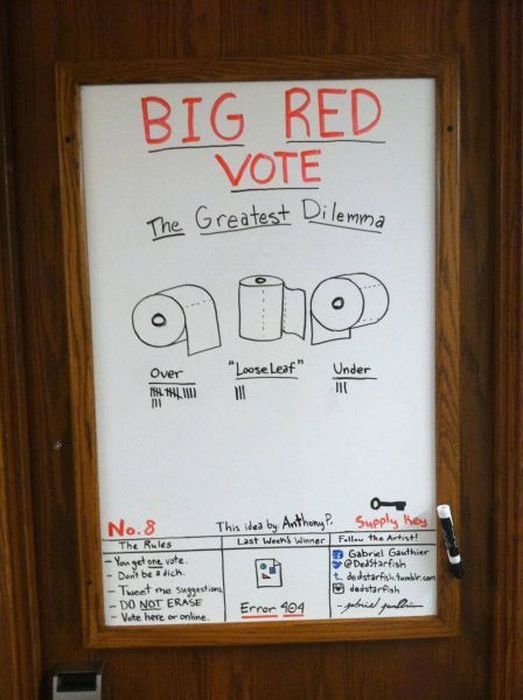 BIG RED
VOTE
The Greatest Dilemma
Over
"Loose Leaf"
Under
No. 8
This idea by: Anthony P.
Supply Key
The Rules
- You get one vote.
- Don't be a dick.
- Tweet me suggestions
- DO NOT ERASE
- Vote here or online.
Last Week's Winner
Error 404
Follow the Artist!
Gabriel Gauthier
@DedStarfish
t. dedstarfish.tumblr.com
dedstarfish
- gabriel gauthier